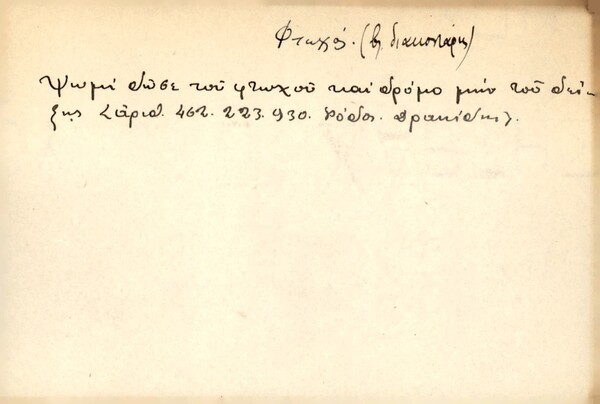 Φτωχός. (βλ. διακονιάρης)
Ψωμί δῶσε τοῦ φτωχοῦ καὶ δρόμο μήν τοῦ δεί-
ξης Λ. ἀριθ. 462. 223. 930. Ρόδος. Δρακίδης.